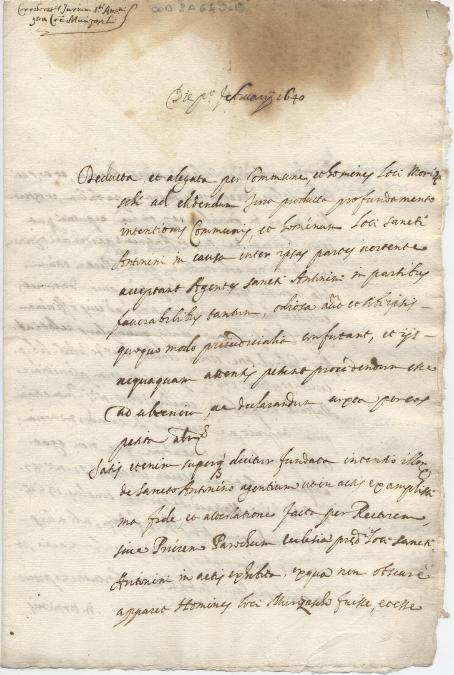 Corroborat.s Jurium S.ti Anto
gtra Co.e Murzaschi
Die p.o februarij 1640
Deducta, et alegata per Commune, et homines loci Morza
schi ad elidendum Jura producta pro fundamento
intentionis Communis, et hominum loci sancti
Antonini in causa inter ipsas partes vertente
acceptant Agentes sancti Antonini in partibus
favorabilibus tantum, odiosa aut.e et illis
quoquo modo preiudicialia confutant, et ijs
nequaquam attentis petunt procedendum esse
ad ulteriora, ac declarandum iuxta per eos
petita
Satis etenim superq. dicitur fundata intentio illor.
de Sancto Antonino agentium ut in actis ex amplissi
ma fide, et attestatione facta per Rectorem,
sive Parochum Ecclesia pred.i loci sancti
Antonini in actis exhibita, ex qua non obscure
apparet Homines loci Murzaschi fuisse, et esse